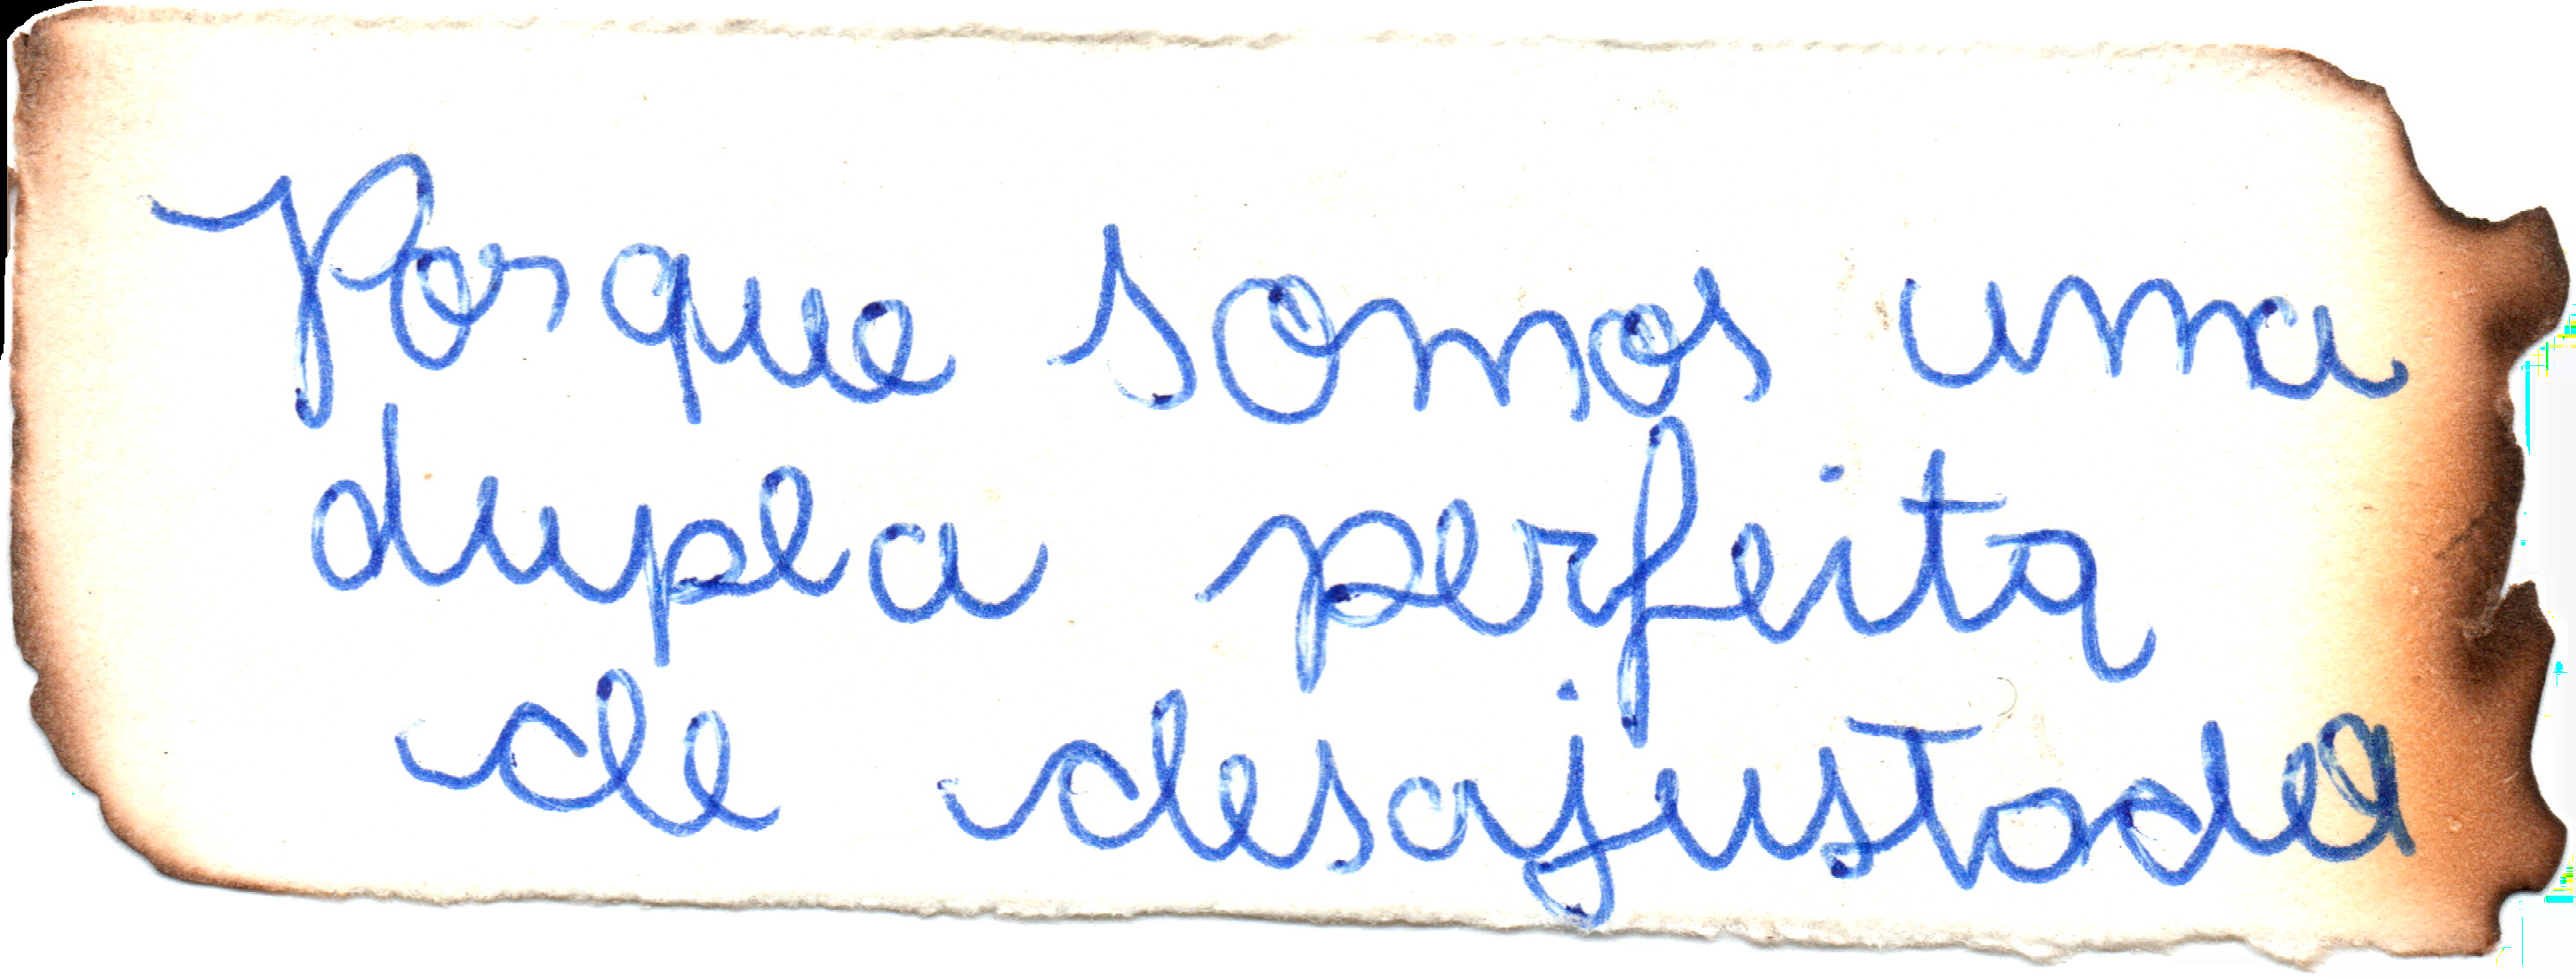 Porque somos uma
dupla perfeita
de desajustada